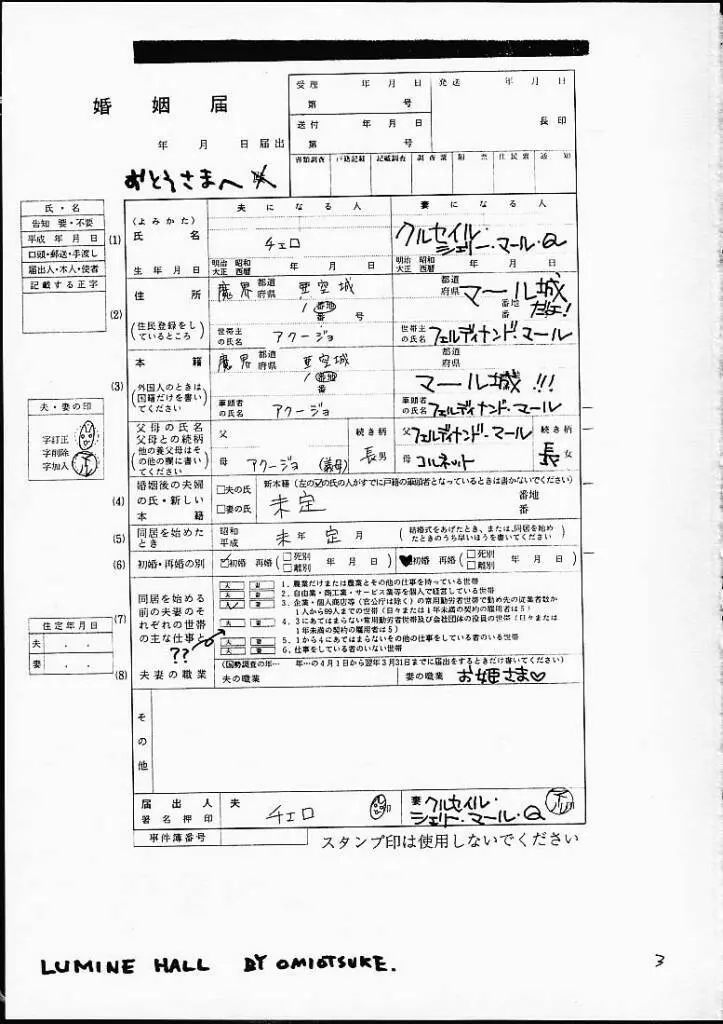 婚姻届
年 月 日 届出
受理 年 月 日
第 号
発送 年 月 日
送付 年 月 日
第 号
長印
書類調査 戸籍記載 記載調査 調査票 附票 住民票 通知
おとうさまへ
氏・名
告知 要・不要
平成 年 月 日
口頭・郵送・手渡し
届出人・本人・使者
記載する正字
夫になる人 妻になる人
(1)
(よみかた)
氏名
チェロ
クルセイル・
シェリー・マール・Q
生年月日
明治 昭和
大正 西暦
年 月 日
明治 昭和
大正 西暦
年 月 日
(2)
住所
(住民登録をし
ているところ)
魔界 都道
府県 亜空城
1 番地
番 号
都道
府県 マール城
番地
番 号
だよ!
世帯主
の氏名 アクージョ
世帯主
の氏名 フェルディナンド・マール
(3)
本籍
外国人のときは
国籍だけを書い
てください
魔界 都道
府県 亜空城
1 番地
番
都道
府県
マール城!!!
筆頭者
の氏名 アクージョ
筆頭者
の氏名 フェルディナンド・マール
夫・妻の印
字訂正
字削除
字加入
父母の氏名
父母との続柄
他の養父母はそ
の他の欄に書い
てください
父 続き柄
母 アクージョ (義母) 長男
父 フェルディナンド・マール 続き柄
母 コルネット 長女
(4)
婚姻後の夫婦
の氏・新しい
本籍
□夫の氏
□妻の氏
新本籍(左の☑の氏の人がすでに戸籍の筆頭者となっているときは書かないでください)
未定
番地
番
(5)
同居を始めた
とき
昭和
平成 未年 定月
(結婚式をあげたとき、または、同居を始め
たときのうち早いほうを書いてください)
(6)
初婚・再婚の別
☑初婚 再婚 (□死別
□離別 年 月 日)
♥初婚 再婚 (□死別
□離別 年 月 日)
(7)
同居を始める
前の夫妻のそ
れぞれの世帯
の主な仕事と
??
夫 妻 1. 農業だけまたは農業とその他の仕事を持っている世帯
夫 妻 2. 自由業・商工業・サービス業等を個人で経営している世帯
夫 妻 3. 企業・個人商店等(官公庁は除く)の常用勤労者世帯で勤め先の従業者数が
1人から99人までの世帯(日々または1年未満の契約の雇用者は5)
夫 妻 4. 3にあてはまらない常用勤労者世帯及び会社団体の役員の世帯(日々または
1年未満の契約の雇用者は5)
夫 妻 5. 1から4にあてはまらないその他の仕事をしている者のいる世帯
夫 妻 6. 仕事をしている者のいない世帯
住定年月日
夫 . .
妻 . .
(8)
夫妻の職業
(国勢調査の年… 年…の4月1日から翌年3月31日までに届出をするときだけ書いてください)
夫の職業
妻の職業 お姫さま♡
その他
届出人
署名押印
夫 チェロ 印
妻 クルセイル・
シェリー・マール・Q 印
事件簿番号
スタンプ印は使用しないでください
LUMINE HALL BY OMIOTSUKE.
3